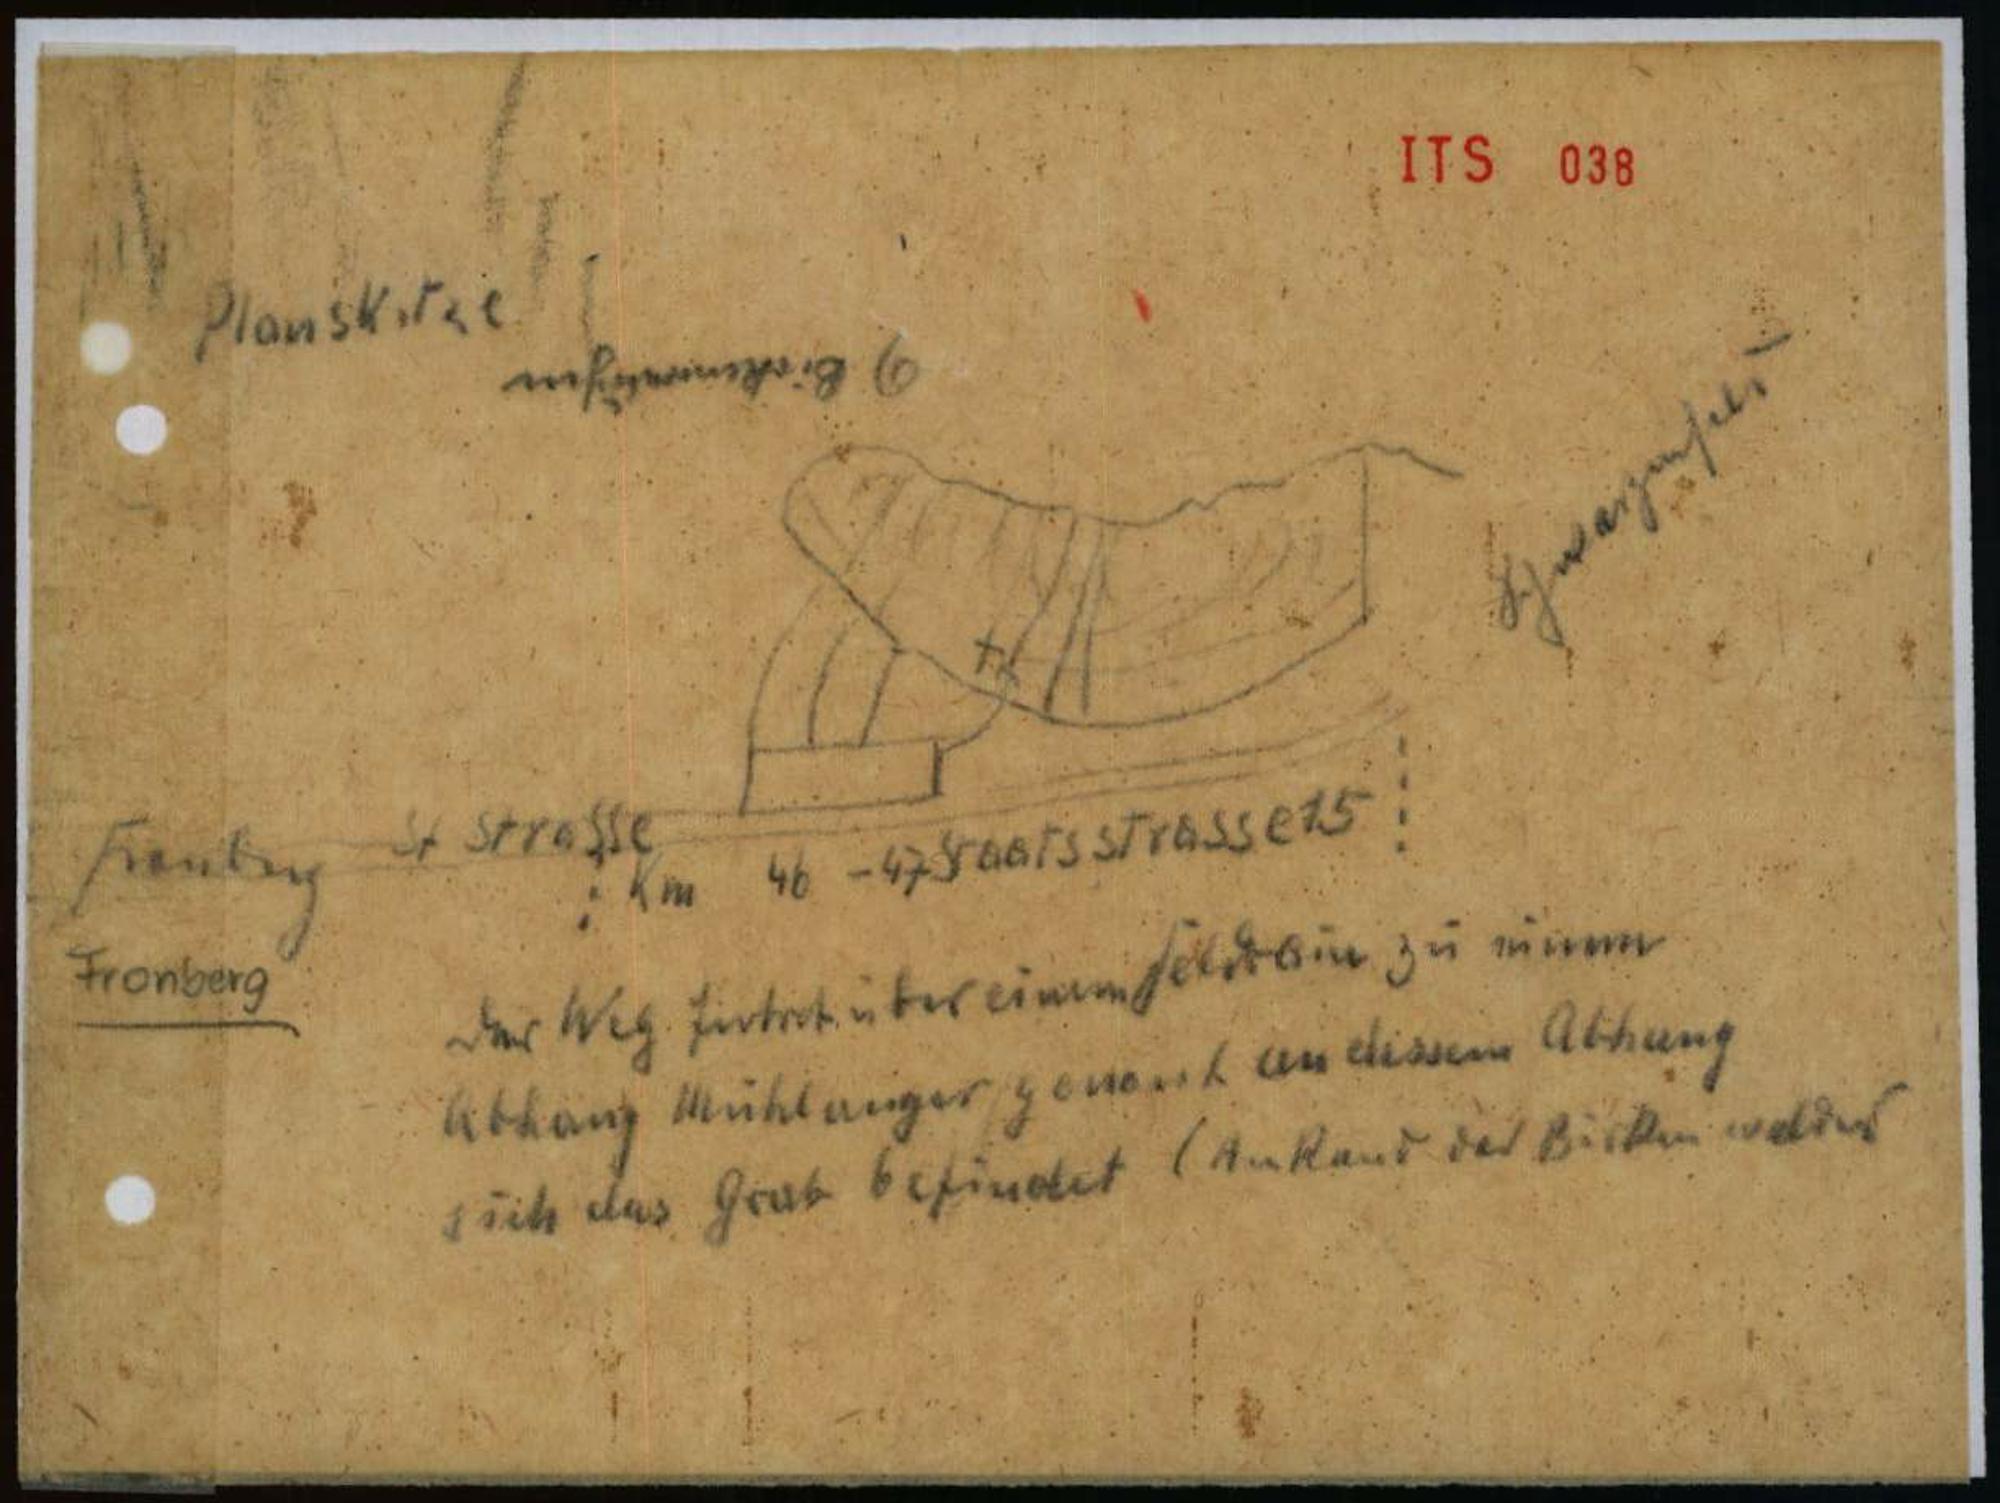 ITS 038
Planskitze
Schwarzenfeld
St Strasse
Km 46 - 47 Staatsstrasse 15
Fronberg
Fronberg
Der Weg führt über einem Feldrain zu einem
Abhang Mühlanger genannt an diesem Abhang
sich das Grab befindet (Am Rand des Birken waldes